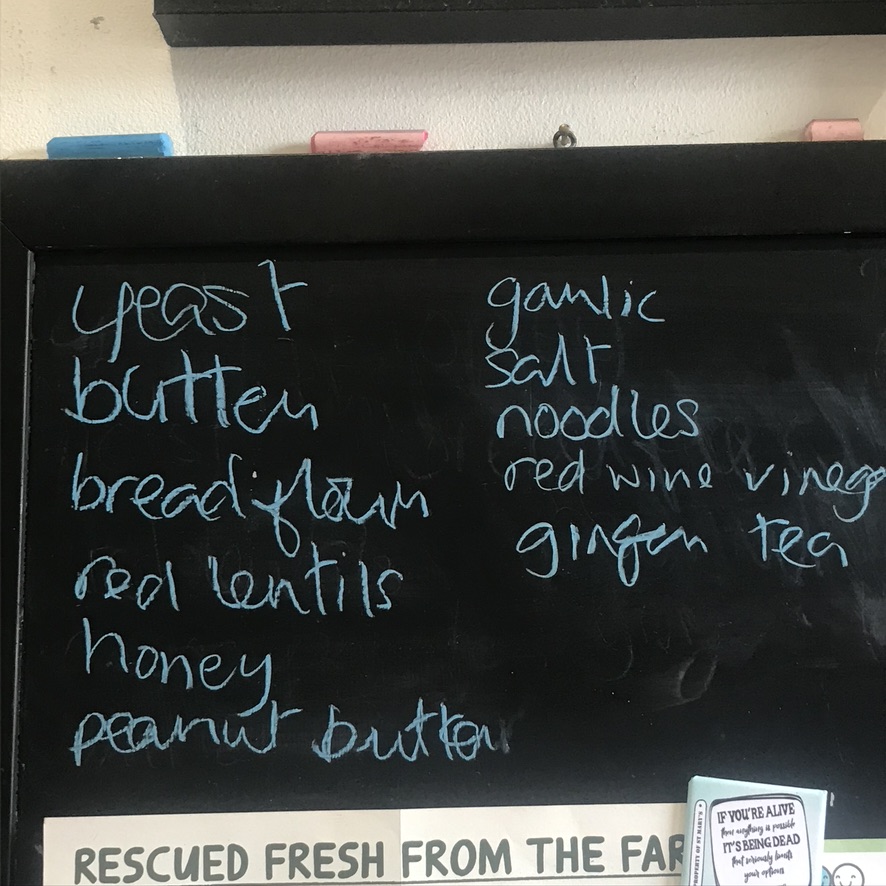 yeast
butter
bread flour
red lentils
honey
peanut butter
garlic
salt
noodles
red wine vinega
ginger tea
RESCUED FRESH FROM THE FAR
PROPERTY OF ST MARY'S
IF YOU'RE ALIVE
then anything is possible
IT'S BEING DEAD
that seriously limits
your options